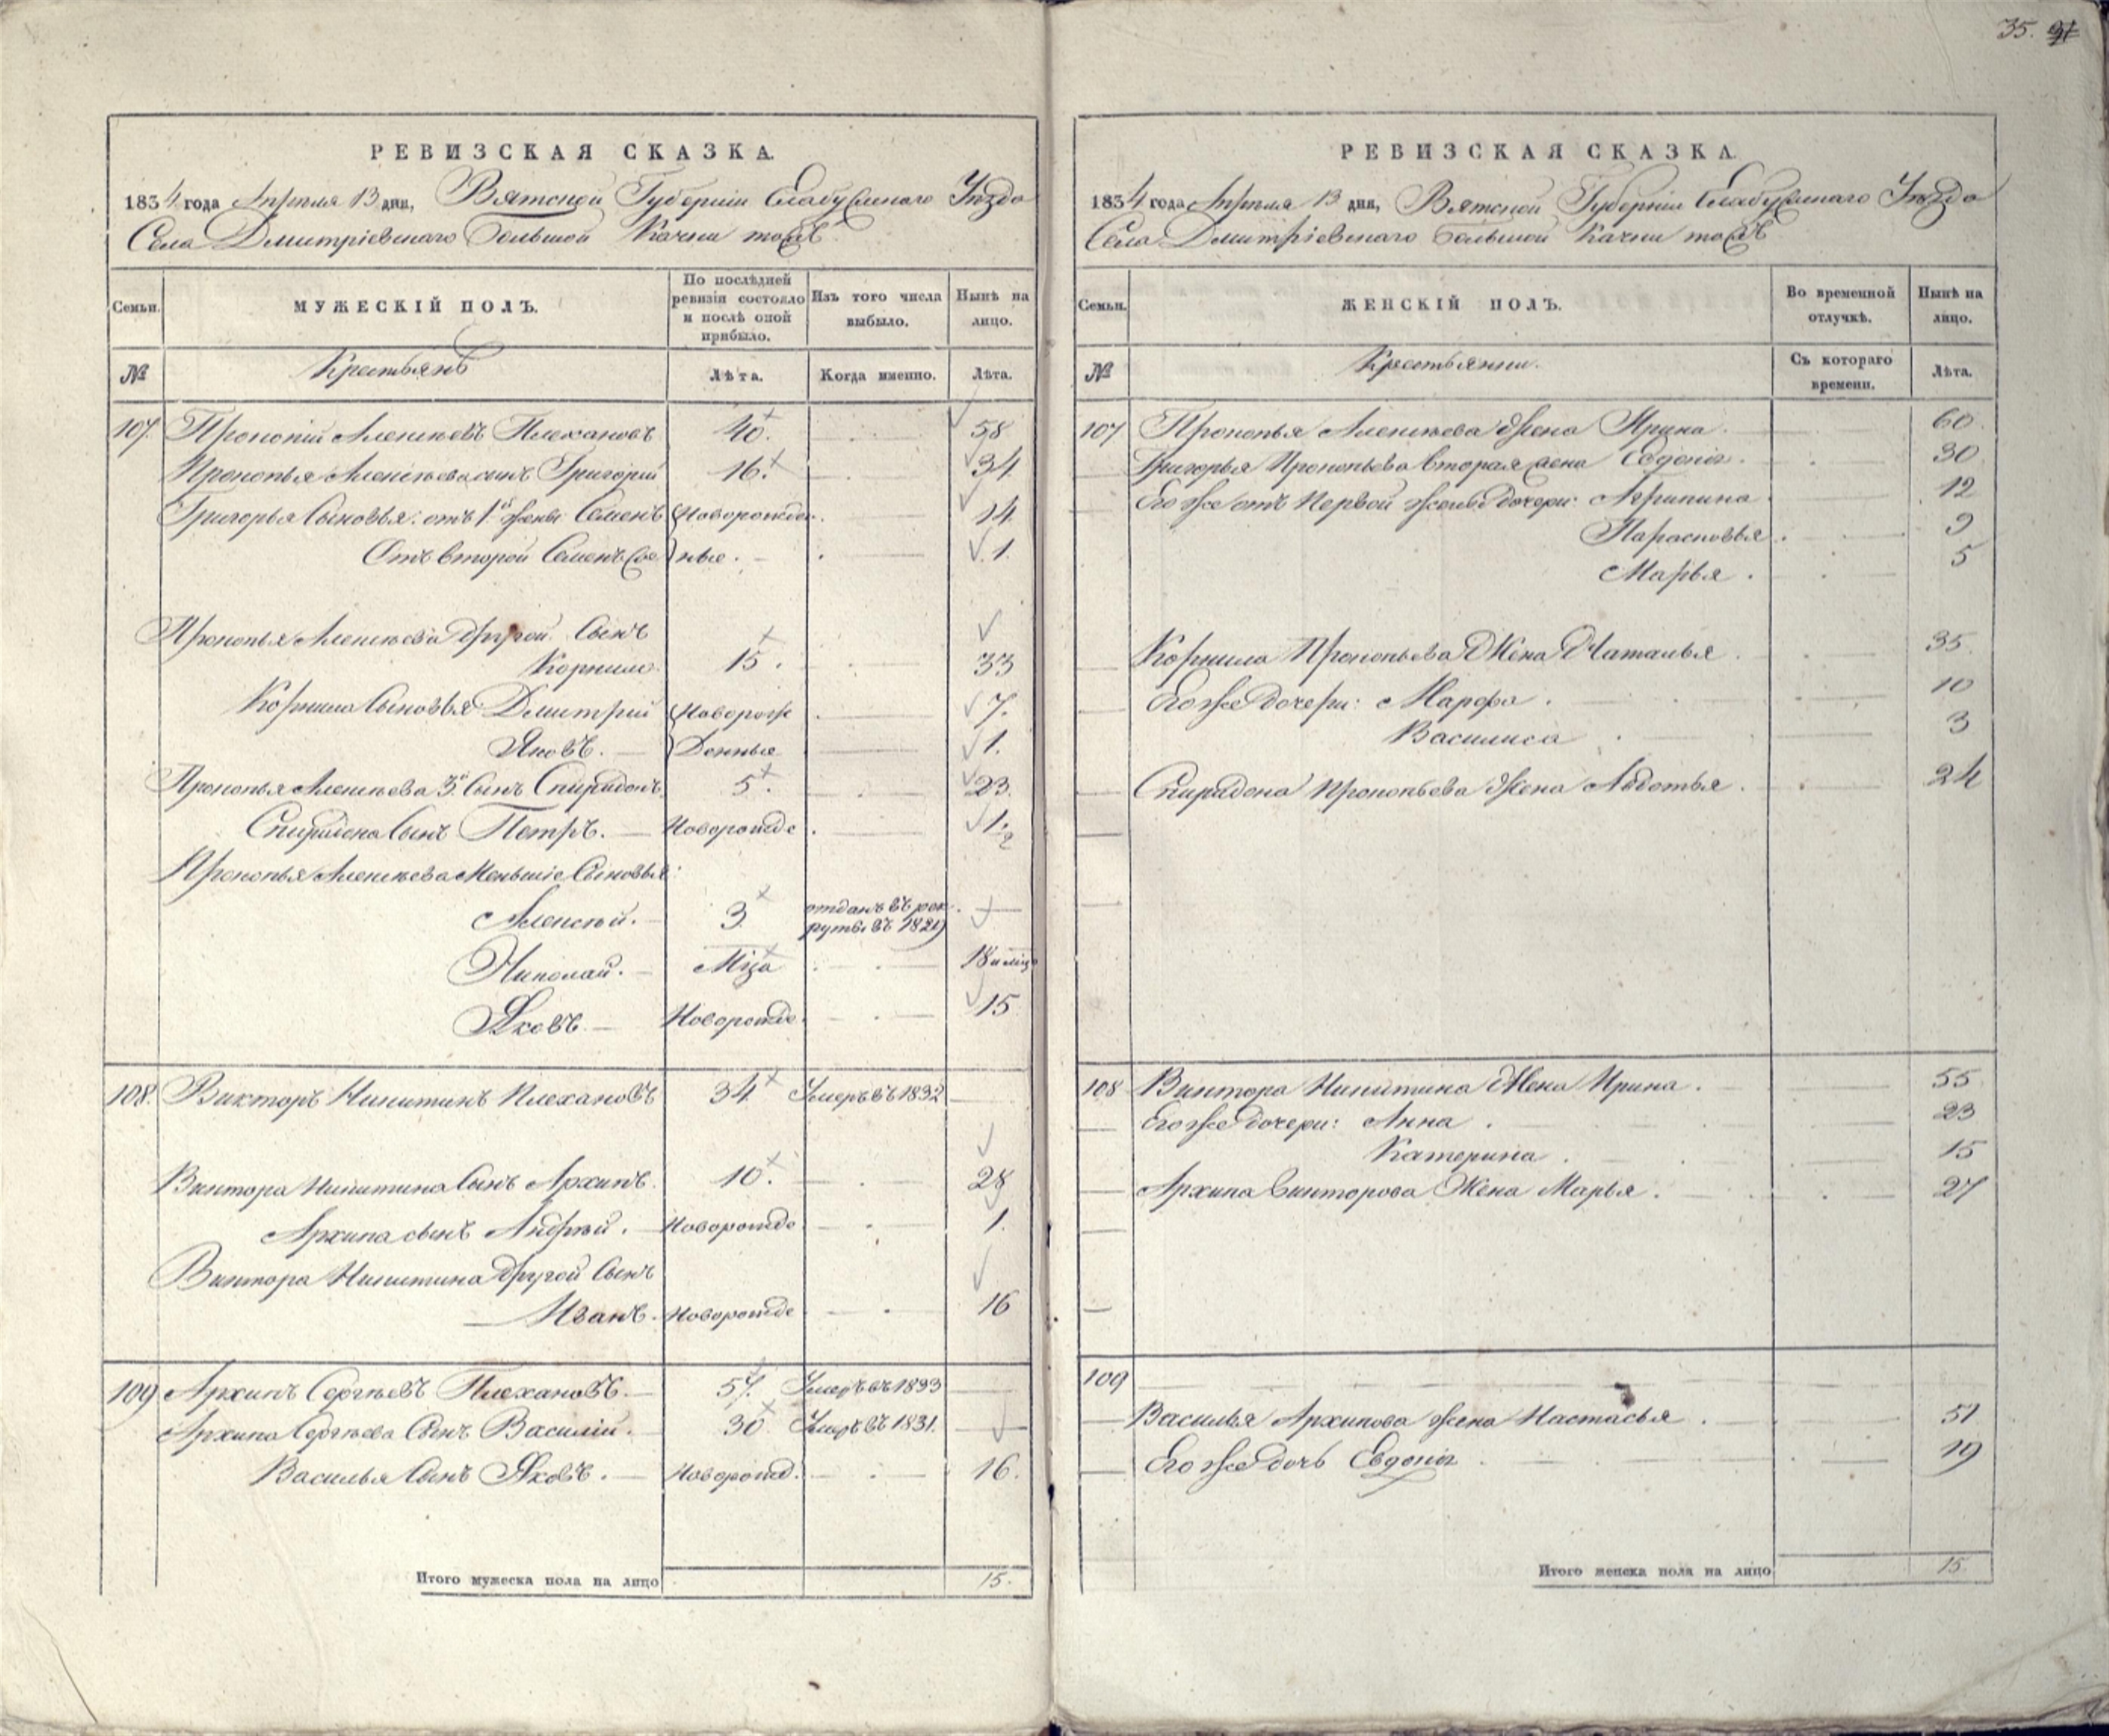 35.
РЕВИЗСКАЯ СКАЗКА.
1834 года Апреля 13 дня, Вятской Губернiи Елабужскаго Уѣзда
Села Дмитрiевскаго Большой Качки тожъ
Семьи.
МУЖЕСКIЙ ПОЛЪ.
По послѣдней ревизiи состояло и послѣ оной прибыло.
Изъ того числа выбыло.
Нынѣ на лицо.
№
Крестьянъ
Лѣта.
Когда именно.
Лѣта.
107. Прокопiй Алексѣевъ Плехановъ 40. 58
Прокопья Алексѣева сынъ Григорiй 16. 34
Григорья Сыновья: отъ 1й жены Семенъ Новорожден 14
Отъ второй Семенъ же ные. 1.
Прокопья Алексѣева другой Сынъ
Корнило. 15. 33
Корнила Сыновья Дмитрiй Новорож 7.
Яковъ. Денные 1.
Прокопья Алексѣева 3й Сынъ Спиридонъ 5. 23.
Спиридона Сынъ Петръ. Новорожде 1.
2
Прокопья Алексѣева Меньшiе Сыновья:
Алексѣй. 3. отданъ въ рек
руты въ 1821
Николай. Мца 18 и мца
Яковъ. Новорожде. 15
108. Викторъ Никитинъ Плехановъ 34 Умеръ въ 1832
Виктора Никитина Сынъ Архипъ. 10. 28
Архипа сынъ Андрѣй. Новорожде 1.
Виктора Никитина другой Сынъ
Иванъ. Новорожде 16
109 Архипъ Сергѣевъ Плехановъ. 57. Умеръ въ 1833
Архипа Сергѣева Сынъ Василiй. 30 Умеръ въ 1831.
Василья Сынъ Яковъ. Новорожд. 16.
Итого мужеска пола на лицо 15.
РЕВИЗСКАЯ СКАЗКА.
1834 года Апреля 13 дня, Вятской Губернiи Елабужскаго Уѣзда
Села Дмитрiевскаго Большой Качки тожъ
Семьи.
ЖЕНСКIЙ ПОЛЪ.
Во временной отлучкѣ.
Нынѣ на лицо.
№
Крестьянки.
Съ котораго времени.
Лѣта.
107 Прокопья Алексѣева Жена Ирина. 60.
Григорья Прокопьева вторая жена Евдокiя. 30
Его же отъ Первой жены дочери: Агрипина 12
Парасковья. 9
Марья. 5
Корнила Прокопьева Жена Наталья. 35.
Его же дочери: Марфа. 10
Василиса 3
Спиридона Прокопьева Жена Авдотья. 24
108 Виктора Никитина Жена Ирина. 55
Его же дочери: Анна. 23
Катерина. 15
Архипа Викторова Жена Марья. 27
109
Василья Архипова жена Настасья. 51
Его же дочь Евдокiя. 19
Итого женска пола на лицо 15.